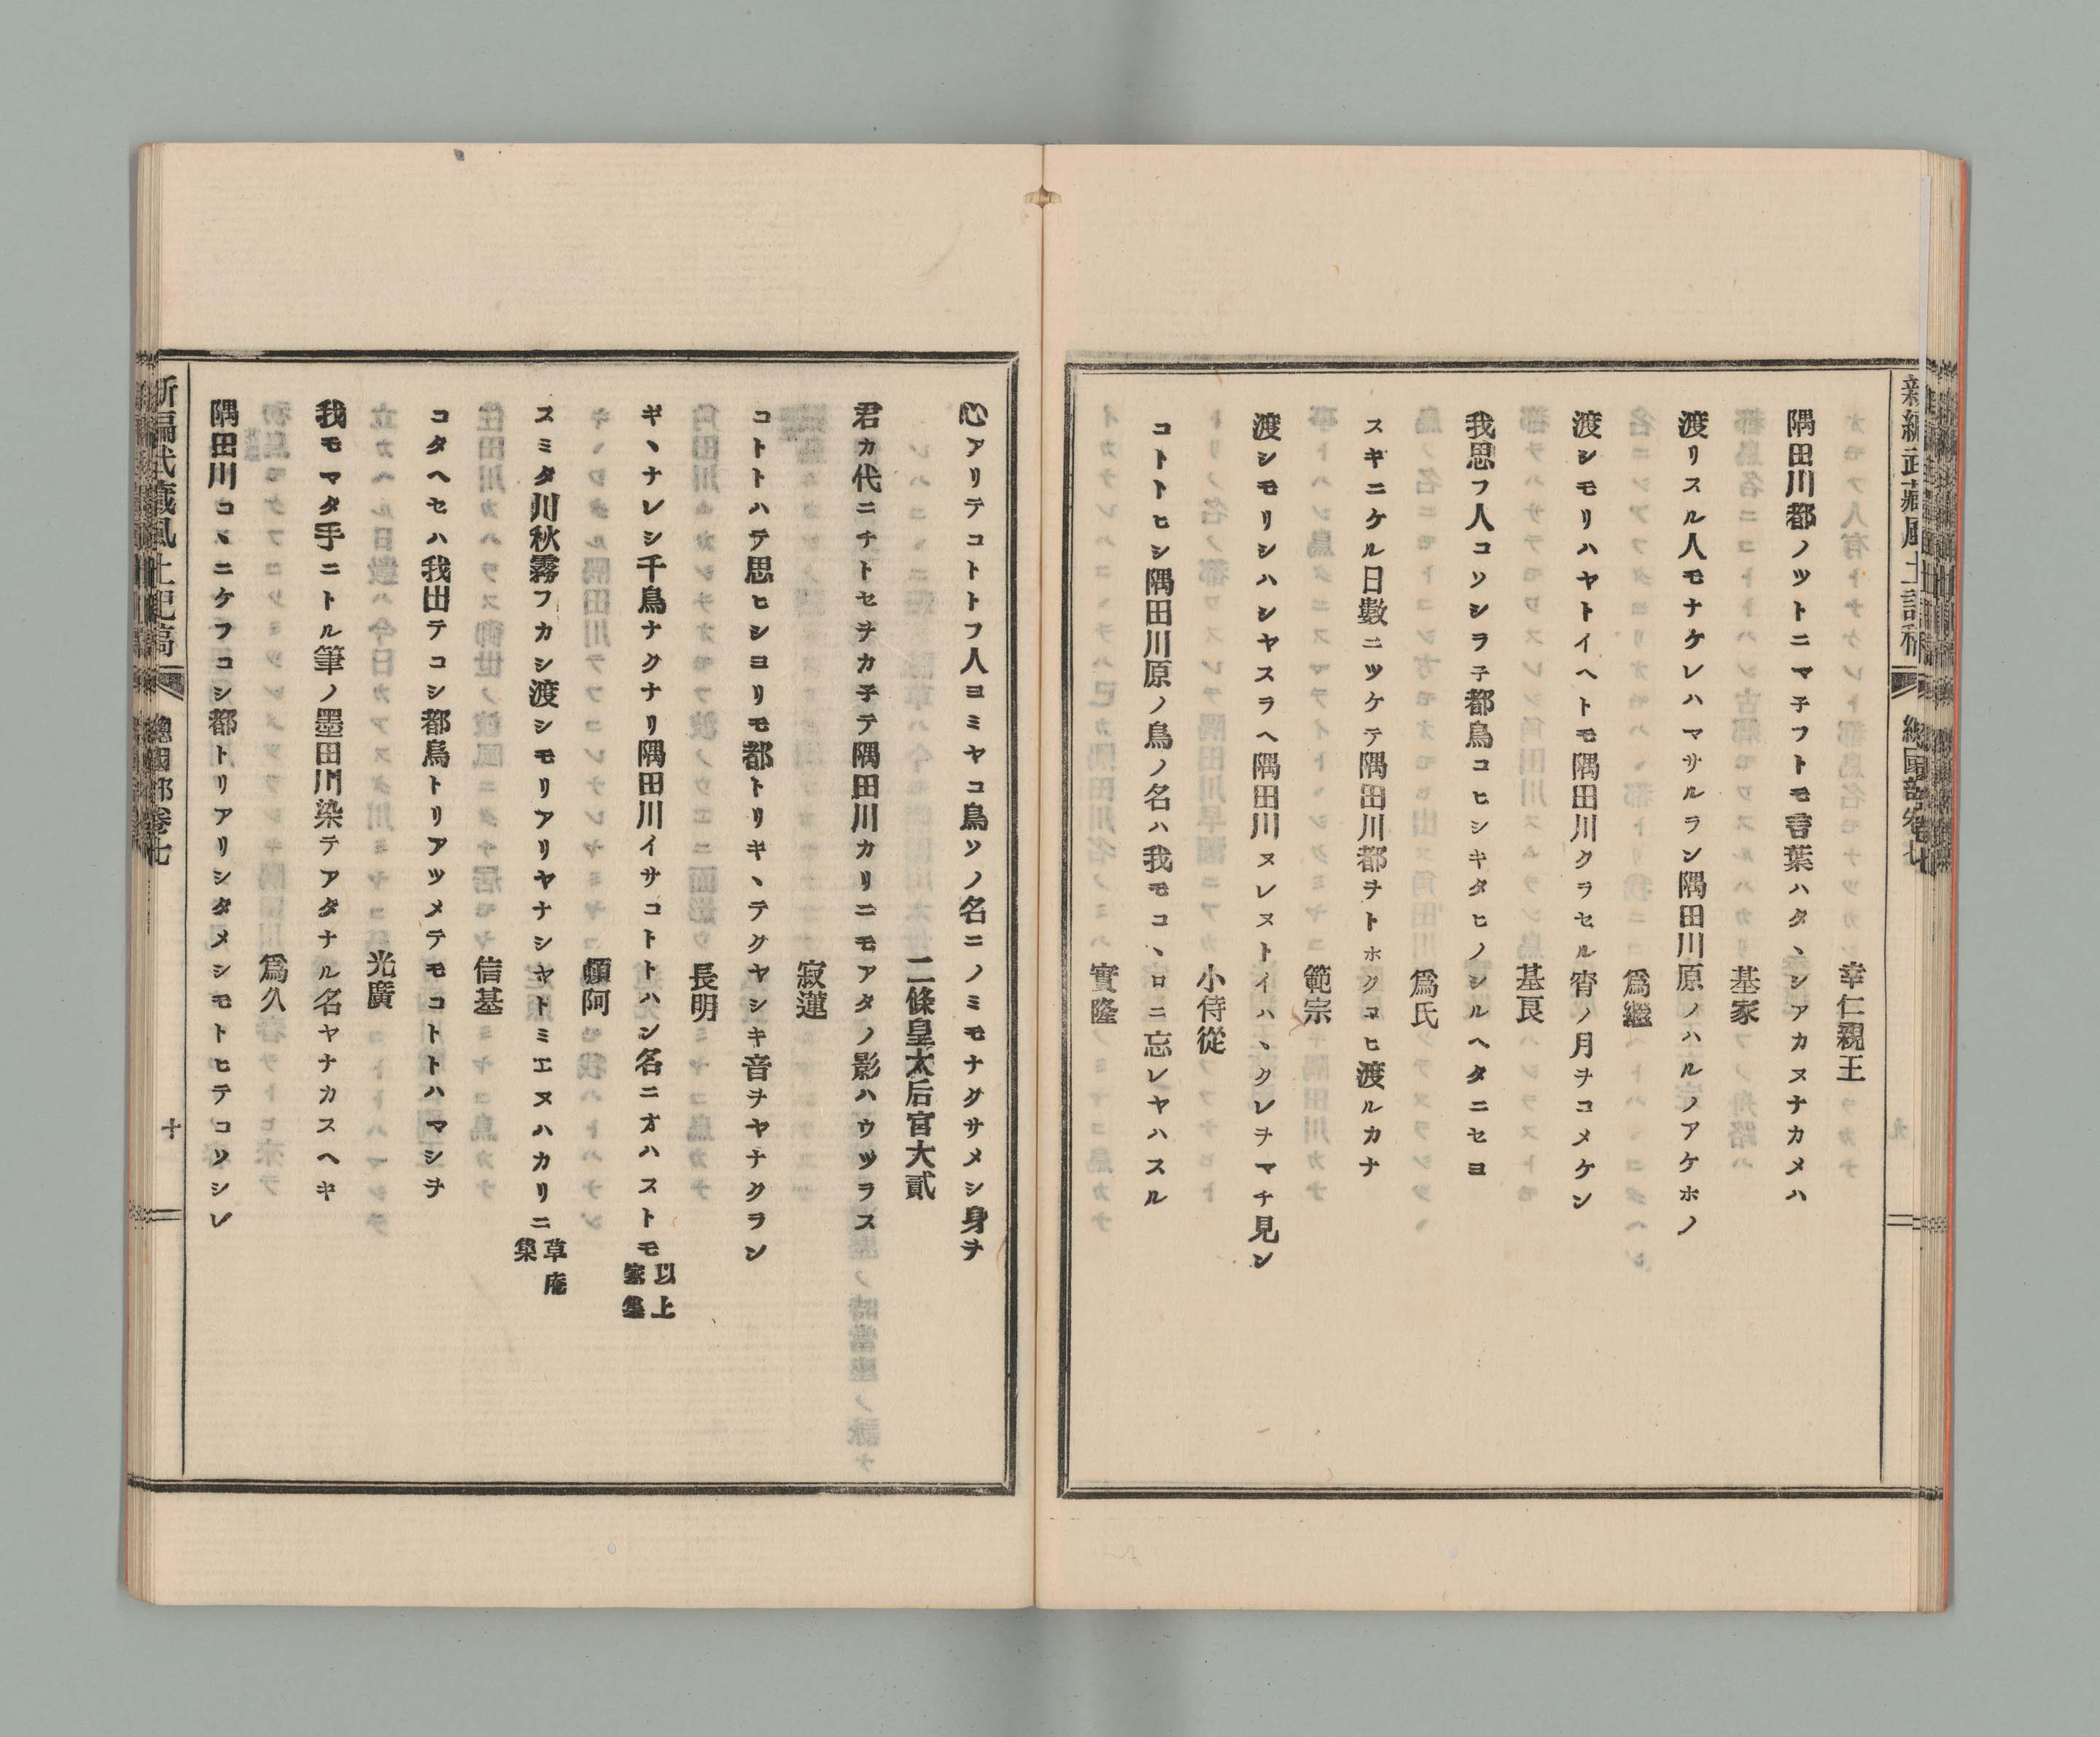 新編武藏風土記稿
總國部卷七
幸仁親王
隅田川都ノツトニマチフトモ言葉ハタヽシアカヌナカメハ
基家
渡リスル人モナケレハマサルラン隅田川原ノハルノアケホノ
爲繼
渡シモリハヤトイヘトモ隅田川クラセル宵ノ月ヲコメケン
基良
我思フ人コソシラ子都鳥コヒシキタヒノシルヘタニセヨ
爲氏
スキニケル日數ニツケテ隅田川都ヲトホクコヒ渡ルカナ
範宗
渡シモリシハシヤスラヘ隅田川ヌレヌトイハヽクレヲマチ見ン
小侍從
コトトヒシ隅田川原ノ鳥ノ名ハ我モコヽロニ忘レヤハスル
實隆
心アリテコトトフ人ヨミヤコ鳥ソノ名ニノミモナクサメシ身ヲ
二條皇太后宮大貳
君カ代ニナトセヲカ子テ隅田川カリニモアタノ影ハウツラス
寂蓮
コトトハテ思ヒシヨリモ都トリキヽテクヤシキ音ヲヤナクラン
長明
キヽナレシ千鳥ナクナリ隅田川イサコトトハン名ニオハストモ以上家集
頓阿
スミタ川秋霧フカシ渡シモリアリヤナシヤトミエヌハカリニ草庵集
信基
コタヘセハ我出テコシ都鳥トリアツメテモコトトハマシヲ
光廣
我モマタ手ニトル筆ノ墨田川染テアタナル名ヤナカスヘキ
爲久
隅田川コヽニケフコシ都トリアリシタメシモトヒテコソシレ
新編武藏風土記稿
總國部卷七
十